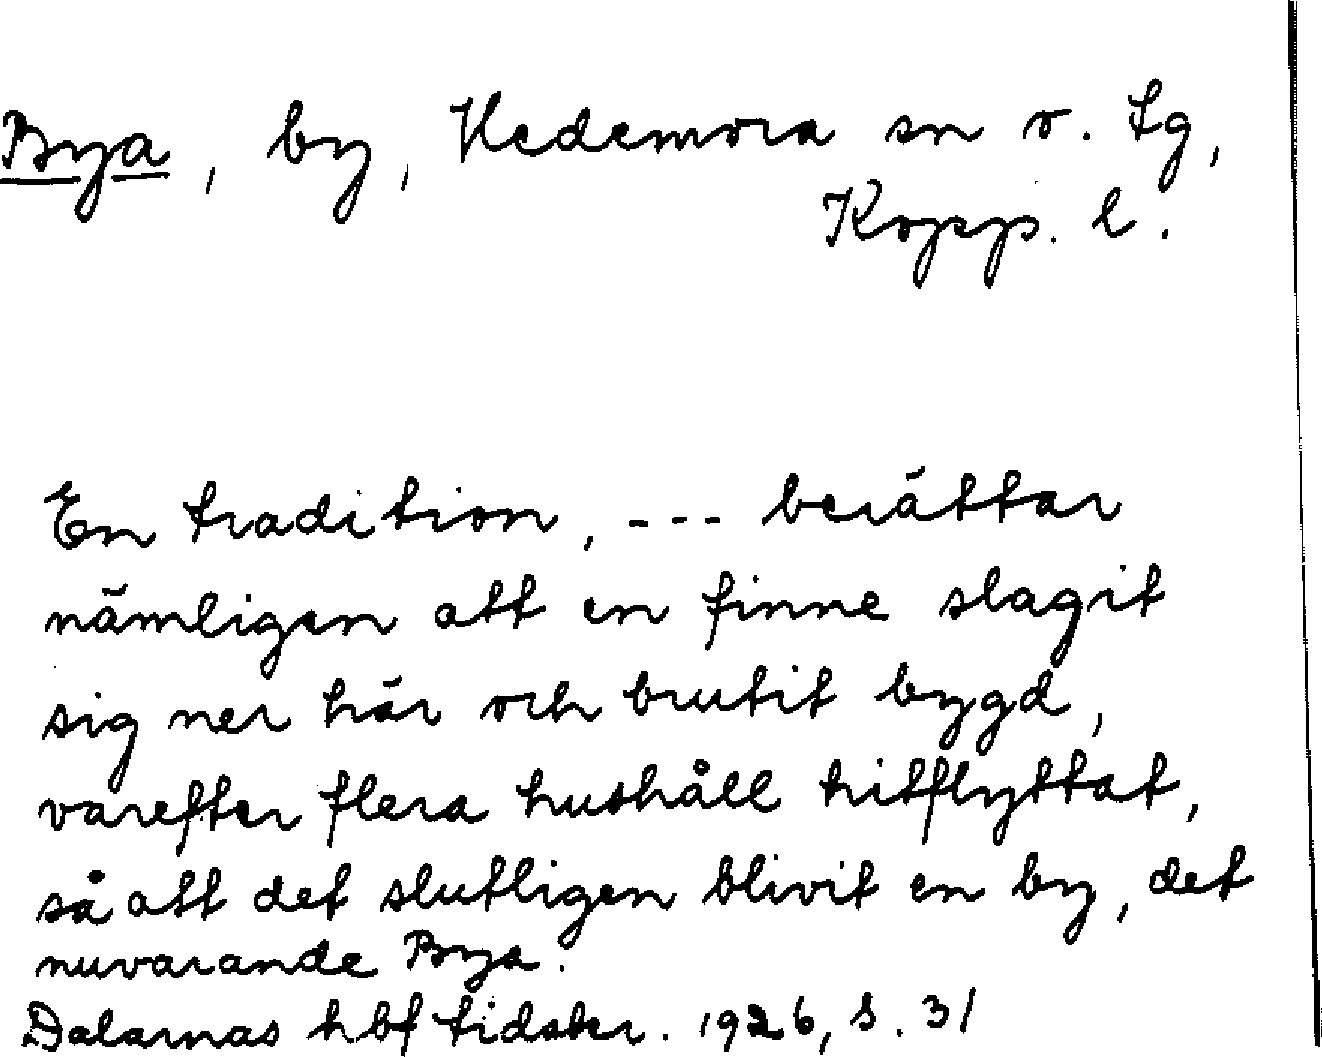 Bya, by, Hedemora sn o. tg,
Kopp. l.
En tradition, --- berättar
nämligen att en finne slagit
sig ner här och brutit bygd,
varefter flera hushåll hitflyttat,
så att det slutligen blivit en by, det
nuvarande Bya.
Dalarnas hbf tidskr. 1926, s. 31